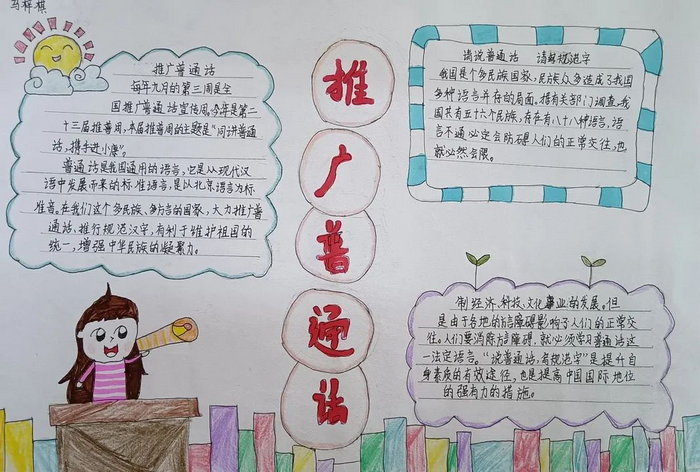 马梓棋
推广普通话
每年九月的第三周是全
国推广普通话宣传周。今年是第二
十三届推普周，本届推普周的主题是“同讲普通
话，携手进小康”。
普通话是我国通用的语言，它是以现代汉
语中发展而来的标准语言，是以北京语言为标
准音。在我们这个多民族、多方言的国家，大力推广普
通话、推行规范汉字，有利于维护祖国的
统一，增强中华民族的凝聚力。
推
广
普
通
话
请说普通话 请财规范字
我国是个多民族国家，民族众多造成了我国
多种语言并存的局面，据有关部门调查，我
国共有五十六个民族，存在有八十八种语言，语
言不通必定会防碍人们的正常交往，也
就必然会限。
制经济、科技、文化事业的发展。但
是由于各地的方言障碍影响了人们的正常交
往。人们要消除方言障碍，就必须学习普通话这
一法定语言。“说普通话，写规范字”是提升自
身素质的有效途径，也是提高中国国际地位
的强有力的措施。